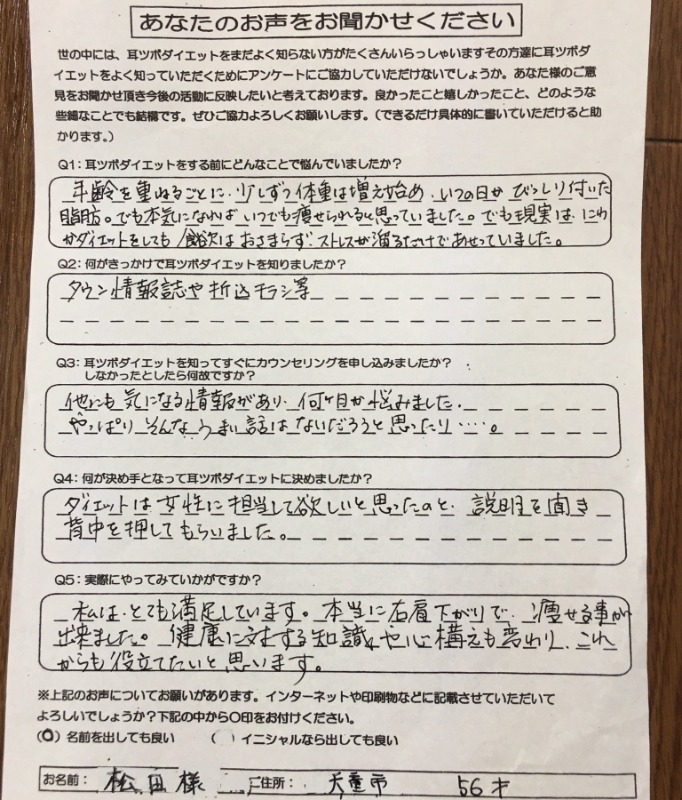 あなたのお声をお聞かせください
世の中には、耳ツボダイエットをまだよく知らない方がたくさんいらっしゃいますその方達に耳ツボダ
イエットをよく知っていただくためにアンケートにご協力していただけないでしょうか。あなた様のご意
見をお聞かせ頂き今後の活動に反映したいと考えております。良かったこと嬉しかったこと、どのような
些細なことでも結構です。ぜひご協力よろしくお願いします。(できるだけ具体的に書いていただけると助
かります。)
Q1:耳ツボダイエットをする前にどんなことで悩んでいましたか?
年齢を重ねるごとに、少しずつ体重は増え始め、いつの日かびっしり付いた
脂肪。でも本気になればいつでも痩せられると思っていました。でも現実は、にわ
かダイエットをしても食欲はおさまらず、ストレスが溜るだけであせっていました。
Q2:何がきっかけで耳ツボダイエットを知りましたか?
タウン情報誌や折込チラシ等
Q3:耳ツボダイエットを知ってすぐにカウンセリングを申し込みましたか?
しなかったとしたら何故ですか?
他にも気になる情報があり、何ヶ月か悩みました。
やっぱりそんなうまい話はないだろうと思ったり・・・・。
Q4:何が決め手となって耳ツボダイエットに決めましたか?
ダイエットは女性に担当して欲しいと思ったのと、説明を聞き
背中を押してもらいました。
Q5:実際にやってみていかがですか?
私は、とても満足しています。本当に右肩下がりで、痩せる事が
出来ました。健康に対する知識や心構えも変わり、これ
からも役立てたいと思います。
※上記のお声についてお願いがあります。インターネットや印刷物などに記載させていただいて
よろしいでしょうか?下記の中から○印をお付けください。
(○)名前を出しても良い ( )イニシャルなら出しても良い
お名前: 松田 様 ご住所: 天童市 56才